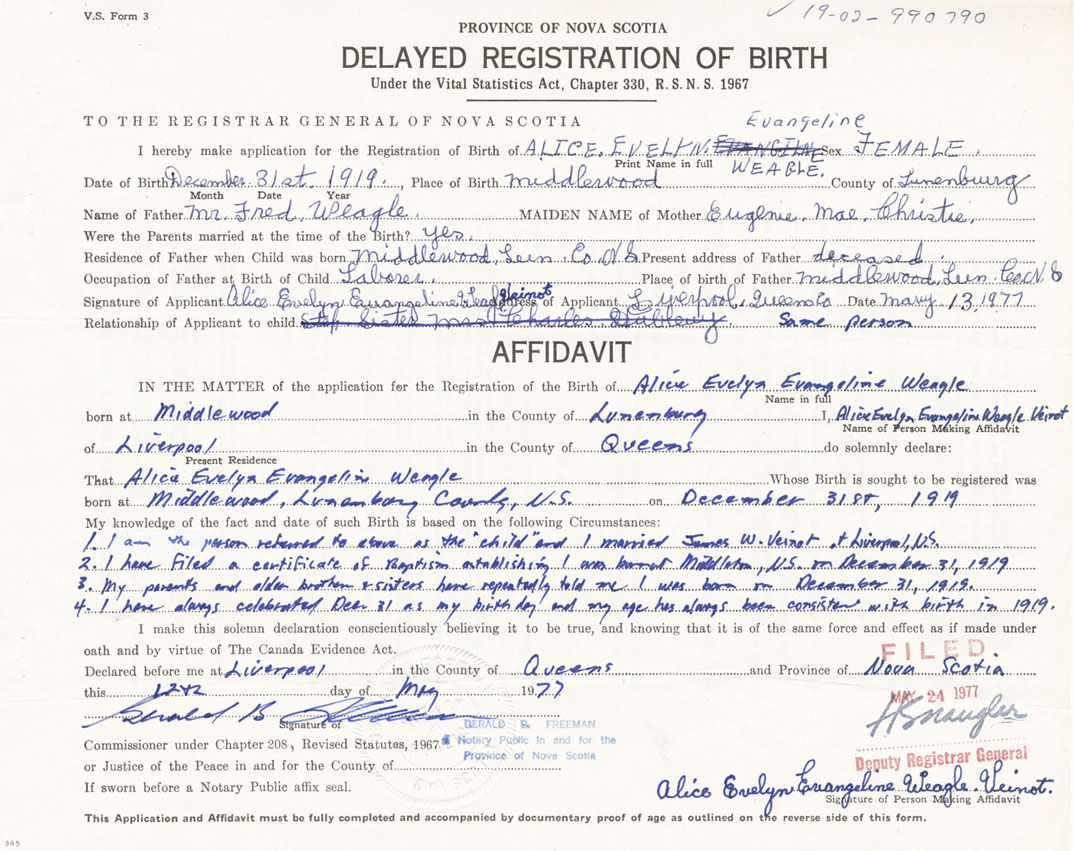 V.S. Form 3
✓ 19-02-990790
PROVINCE OF NOVA SCOTIA
DELAYED REGISTRATION OF BIRTH
Under the Vital Statistics Act, Chapter 330, R.S.N.S. 1967
TO THE REGISTRAR GENERAL OF NOVA SCOTIA
Evangeline
I hereby make application for the Registration of Birth of ALICE. EVELYN. Sex FEMALE.
Print Name in full WEAGLE.
Date of Birth December. 31st. 1919., Place of Birth Middlewood County of Lunenburg
Month Date Year
Name of Father Mr. Fred, Weagle. MAIDEN NAME of Mother Eugenie. Mae. Christie.
Were the Parents married at the time of the Birth? yes.
Residence of Father when Child was born Middlewood, Lun. Co. N.S Present address of Father deceased.
Occupation of Father at Birth of Child Laborer. Place of birth of Father Middlewood, Lun. Co. N.S
Signature of Applicant Alice Evelyn Evangeline Veinot Address of Applicant Liverpool, Queens Co Date May 13, 1977
Relationship of Applicant to child Step Sister Mrs. Charles Same person
AFFIDAVIT
IN THE MATTER of the application for the Registration of the Birth of Alice Evelyn Evangeline Weagle
Name in full
born at Middlewood in the County of Lunenburg I, Alice Evelyn Evangeline Weagle Veinot
Name of Person Making Affidavit
of Liverpool in the County of Queens do solemnly declare:
Present Residence
That Alice Evelyn Evangeline Weagle Whose Birth is sought to be registered was
born at Middlewood, Lunenburg County, N.S. on December 31st, 1919
My knowledge of the fact and date of such Birth is based on the following Circumstances:
1. I am the person referred to above as the "child" and I married James W. Veinot at Liverpool, N.S.
2. I have filed a certificate of Baptism establishing I was born at N.S. on December 31, 1919
3. My parents and older brother & sisters have repeatedly told me I was born on December 31, 1919.
4. I have always celebrated Dec. 31 as my birthday and my age has always been consistent with birth in 1919.
I make this solemn declaration conscientiously believing it to be true, and knowing that it is of the same force and effect as if made under
oath and by virtue of The Canada Evidence Act.
FILED
Declared before me at Liverpool in the County of Queens and Province of Nova Scotia
this day of May 1977
MAY 24 1977
Gerald B
Signature of
GERALD B. FREEMAN
Commissioner under Chapter 208, Revised Statutes, 1967
Notary Public in and for the
Province of Nova Scotia
or Justice of the Peace in and for the County of
Deputy Registrar General
If sworn before a Notary Public affix seal.
Alice Evelyn Evangeline Weagle Veinot.
Signature of Person Making Affidavit
This Application and Affidavit must be fully completed and accompanied by documentary proof of age as outlined on the reverse side of this form.
305